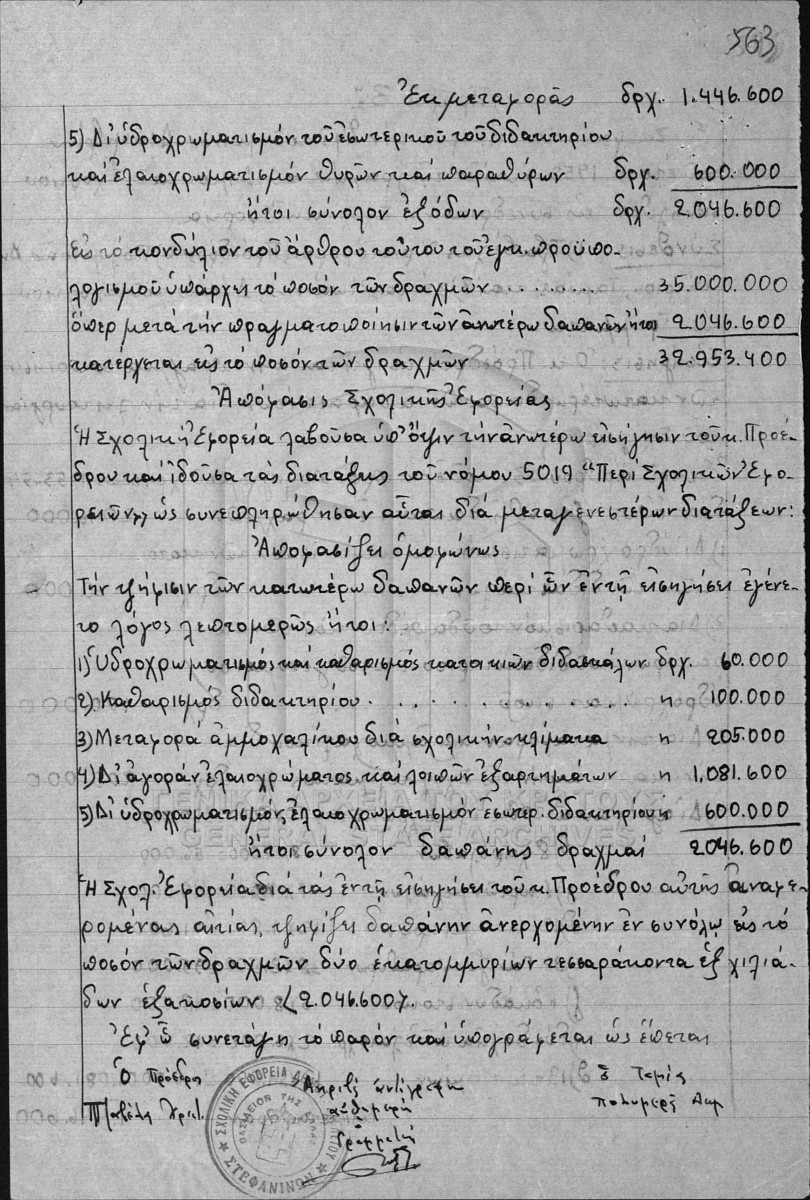 563
Ἐκ μεταφορᾶς δρχ. 1.446.600
5) Δι' ὑδροχρωματισμόν τοῦ ἐσωτερικοῦ τοῦ διδακτηρίου
καί ἐλαιοχρωματισμόν θυρῶν καί παραθύρων δρχ. 600.000
ἤτοι σύνολον ἐξόδων δρχ. 2.046.600
Εἰς τό κονδύλιον τοῦ ἄρθρου τούτου τοῦ ἐγκ. προϋπο-
λογισμοῦ ὑπάρχει τό ποσόν τῶν δραχμῶν ........ 35.000.000
ὅπερ μετά τήν πραγματοποίησιν τῶν ἀνωτέρω δαπανῶν ἤτοι 2.046.600
κατέρχεται εἰς τό ποσόν τῶν δραχμῶν 32.953.400
Ἀπόφασις Σχολικῆς Ἐφορείας
Ἡ Σχολική Ἐφορεία λαβοῦσα ὑπ' ὄψιν τήν ἀνωτέρω εἰσήγησιν τοῦ κ. Προέ-
δρου καί ἰδοῦσα τάς διατάξεις τοῦ νόμου 5019 "Περί Σχολικῶν Ἐφο-
ρειῶν" ὡς συνεπληρώθησαν αὗται διά μεταγενεστέρων διατάξεων:
Ἀποφασίζει ὁμοφώνως
Τήν ψήφισιν τῶν κατωτέρω δαπανῶν περί ὧν ἐν τῇ εἰσηγήσει ἐγένε-
το λόγος λεπτομερῶς ἤτοι:
1) Ὑδροχρωματισμός καί καθαρισμός κατοικιῶν διδασκάλων δρχ. 60.000
2) Καθαρισμός διδακτηρίου . . . . . . . . . . . . " 100.000
3) Μεταφορά ἀμμοχαλίκου διά σχολικήν κλίμακα " 205.000
4) Δι' ἀγοράν ἐλαιοχρώματος καί λοιπῶν ἐξαρτημάτων " 1.081.600
5) Δι' ὑδροχρωματισμόν, ἐλαιοχρωματισμόν ἐσωτερ. διδακτηρίου " 600.000
ἤτοι σύνολον δαπάνης δραχμαί 2.046.600
Ἡ Σχολ. Ἐφορεία διά τάς ἐν τῇ εἰσηγήσει τοῦ κ. Προέδρου αὐτῆς ἀναφε-
ρομένας αἰτίας, ψηφίζει δαπάνην ἀνερχομένην ἐν συνόλῳ εἰς τό
ποσόν τῶν δραχμῶν δύο ἑκατομμυρίων τεσσαράκοντα ἕξ χιλιά-
δων ἑξακοσίων (2.046.600).
Ἐφ' ᾧ συνετάγη τό παρόν καί ὑπογράφεται ὡς ἕπεται
Ὁ Πρόεδρος Ἀκριβές ἀντίγραφον Ὁ Ταμίας
αὐθημερόν
Ὁ Γραμματεύς
ΣΧΟΛΙΚΗ ΕΦΟΡΕΙΑ
ΣΤΕΦΑΝΙΝΩΝ
GENERAL STATE ARCHIVES